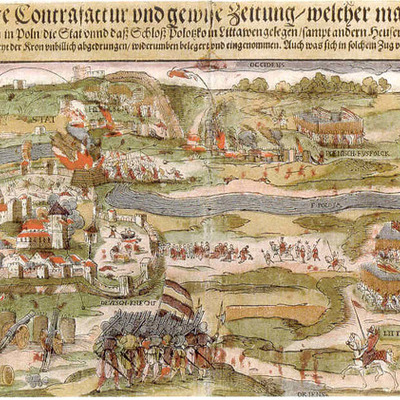 e Contrafactur vnd gewise Zeitung / welcher ma
n in Poln die Stat vnnd daß Schloß Polotzko in Littawen gelegen / sampt andern Heuser
der Kron vnbillich abgedrungen / widerumben belegert vnd eingenommen. Auch was sich in solchem Zug v
OCCIDENS
STAT
DEVTSCH FVSFOLCK
F POLOTA
DEVTSCH KNECHT
LITT
ORIENS